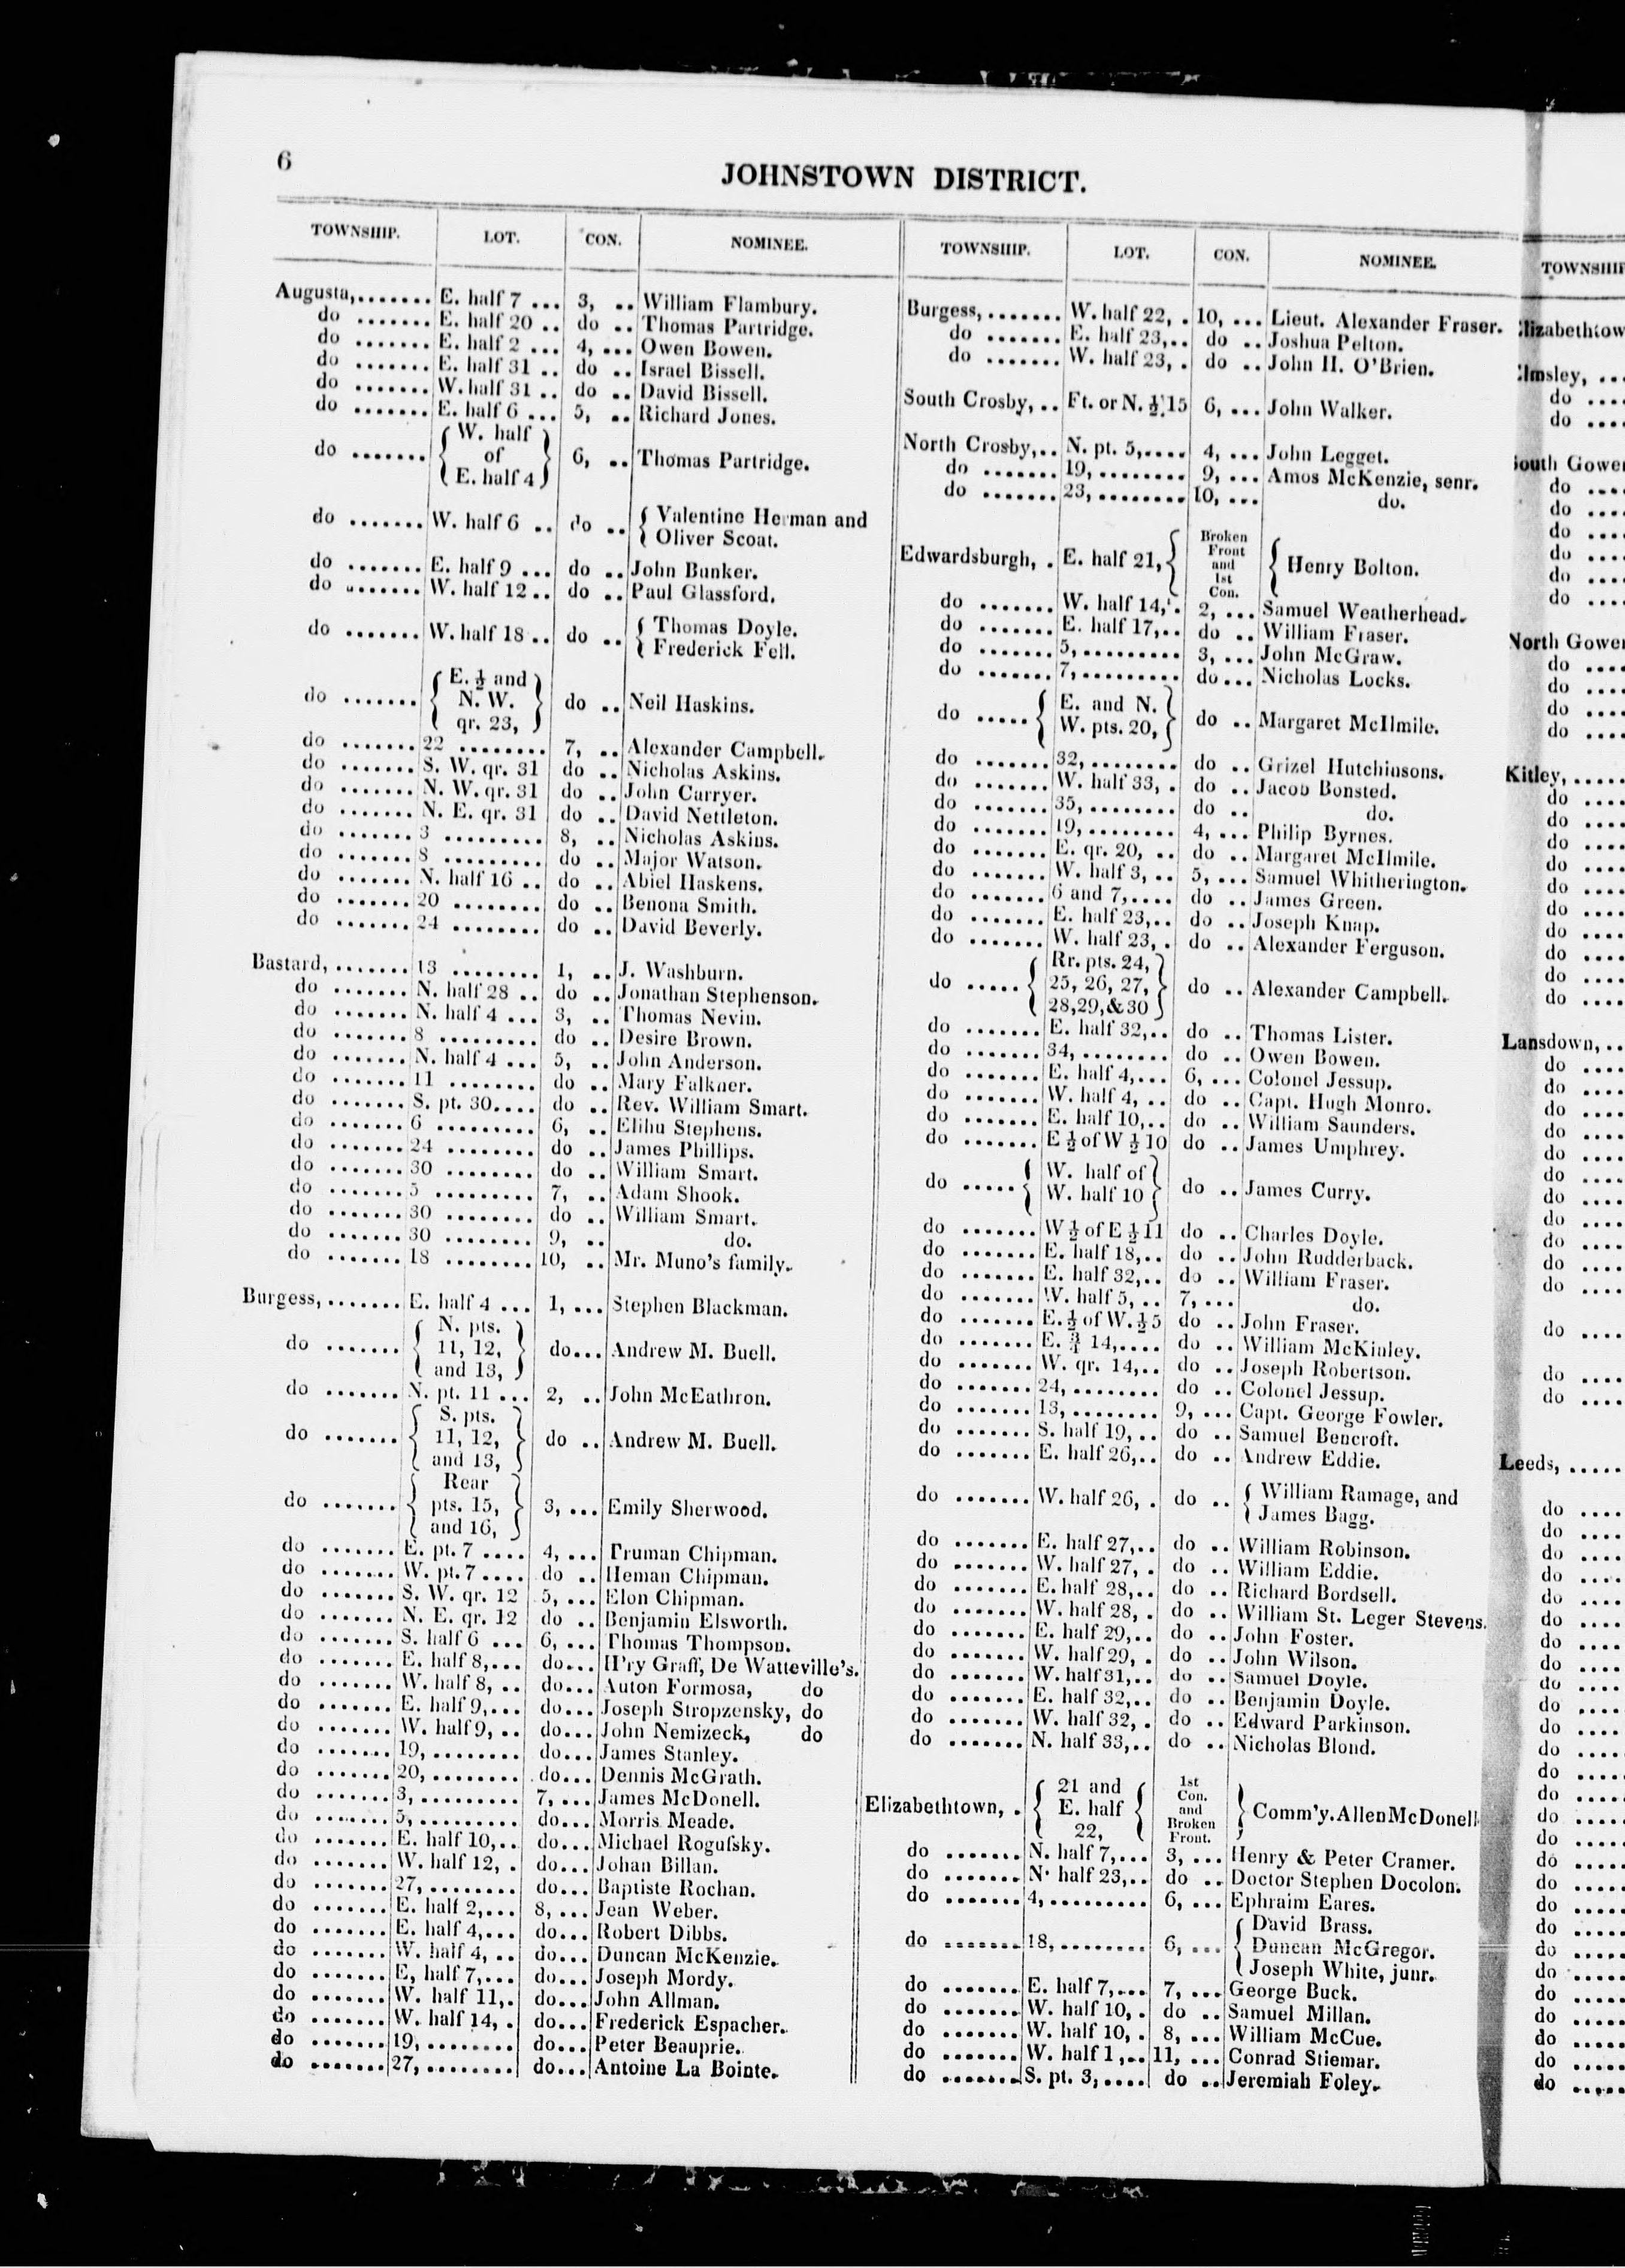 6
JOHNSTOWN DISTRICT.
TOWNSHIP. LOT. CON. NOMINEE.
Augusta,....... E. half 7 ... 3, .. William Flambury.
do ....... E. half 20 .. do .. Thomas Partridge.
do ....... E. half 2 ... 4, ... Owen Bowen.
do ....... E. half 31 .. do .. Israel Bissell.
do ....... W. half 31 .. do .. David Bissell.
do ....... E. half 6 ... 5, .. Richard Jones.
do ....... { W. half of E. half 4 } 6, .. Thomas Partridge.
do ....... W. half 6 .. do .. { Valentine Herman and
Oliver Scoat.
do ....... E. half 9 ... do .. John Bunker.
do ....... W. half 12 .. do .. Paul Glassford.
do ....... W. half 18 .. do .. { Thomas Doyle.
Frederick Fell.
do ....... { E. ½ and N. W. qr. 23, } do .. Neil Haskins.
do ....... 22 ........ 7, .. Alexander Campbell.
do ....... S. W. qr. 31 do .. Nicholas Askins.
do ....... N. W. qr. 31 do .. John Carryer.
do ....... N. E. qr. 31 do .. David Nettleton.
do ....... 3 ......... 8, .. Nicholas Askins.
do ....... 8 ......... do .. Major Watson.
do ....... N. half 16 .. do .. Abiel Haskens.
do ....... 20 ........ do .. Benona Smith.
do ....... 24 ........ do .. David Beverly.
Bastard,....... 13 ........ 1, .. J. Washburn.
do ....... N. half 28 .. do .. Jonathan Stephenson.
do ....... N. half 4 ... 3, .. Thomas Nevin.
do ....... 8 ......... do .. Desire Brown.
do ....... N. half 4 ... 5, .. John Anderson.
do ....... 11 ........ do .. Mary Falkner.
do ....... S. pt. 30.... do .. Rev. William Smart.
do ....... 6 ......... 6, .. Elihu Stephens.
do ....... 24 ........ do .. James Phillips.
do ....... 30 ........ do .. William Smart.
do ....... 5 ......... 7, .. Adam Shook.
do ....... 30 ........ do .. William Smart.
do ....... 30 ........ 9, .. do.
do ....... 18 ........ 10, .. Mr. Muno's family.
Burgess,....... E. half 4 ... 1, ... Stephen Blackman.
do ....... { N. pts. 11, 12, and 13, } do... Andrew M. Buell.
do ....... N. pt. 11 ... 2, .. John McEathron.
do ....... { S. pts. 11, 12, and 13, } do .. Andrew M. Buell.
do ....... { Rear pts. 15, and 16, } 3, ... Emily Sherwood.
do ....... E. pt. 7 .... 4, ... Truman Chipman.
do ....... W. pt. 7 .... do .. Heman Chipman.
do ....... S. W. qr. 12 5, ... Elon Chipman.
do ....... N. E. qr. 12 do .. Benjamin Elsworth.
do ....... S. half 6 ... 6, ... Thomas Thompson.
do ....... E. half 8,... do... H'ry Graff, De Watteville's.
do ....... W. half 8, .. do... Auton Formosa, do
do ....... E. half 9,... do... Joseph Stropzensky, do
do ....... W. half 9, .. do... John Nemizeck, do
do ....... 19,........ do... James Stanley.
do ....... 20,........ do... Dennis McGrath.
do ....... 3,......... 7, ... James McDonell.
do ....... 5,......... do... Morris Meade.
do ....... E. half 10,.. do... Michael Rogufsky.
do ....... W. half 12, . do... Johan Billan.
do ....... 27,........ do... Baptiste Rochan.
do ....... E. half 2,... 8, ... Jean Weber.
do ....... E. half 4,... do... Robert Dibbs.
do ....... W. half 4, .. do... Duncan McKenzie.
do ....... E, half 7,... do... Joseph Mordy.
do ....... W. half 11,. do... John Allman.
do ....... W. half 14, . do... Frederick Espacher.
do ....... 19,........ do... Peter Beauprie.
do ....... 27,........ do... Antoine La Bointe.
TOWNSHIP. LOT. CON. NOMINEE.
Burgess,....... W. half 22, . 10, ... Lieut. Alexander Fraser.
do ....... E. half 23,.. do .. Joshua Pelton.
do ....... W. half 23, . do .. John H. O'Brien.
South Crosby, .. Ft. or N. ½ 15 6, ... John Walker.
North Crosby,.. N. pt. 5,.... 4, ... John Legget.
do ....... 19,........ 9, ... Amos McKenzie, senr.
do ....... 23,........ 10, ... do.
Edwardsburgh, . E. half 21, { Broken Front and 1st Con. { Henry Bolton.
do ....... W. half 14, . 2, ... Samuel Weatherhead.
do ....... E. half 17,.. do .. William Fraser.
do ....... 5,......... 3, ... John McGraw.
do ....... 7,......... do... Nicholas Locks.
do ..... { E. and N. W. pts. 20, } do .. Margaret McIlmile.
do ....... 32,........ do .. Grizel Hutchinsons.
do ....... W. half 33, . do .. Jacob Bonsted.
do ....... 35,........ do .. do.
do ....... 19,........ 4, ... Philip Byrnes.
do ....... E. qr. 20, .. do .. Margaret McIlmile.
do ....... W. half 3, .. 5, ... Samuel Whitherington.
do ....... 6 and 7,.... do .. James Green.
do ....... E. half 23,.. do .. Joseph Knap.
do ....... W. half 23, . do .. Alexander Ferguson.
do ..... { Rr. pts. 24, 25, 26, 27, 28,29,&30 } do .. Alexander Campbell.
do ....... E. half 32,.. do .. Thomas Lister.
do ....... 34,........ do .. Owen Bowen.
do ....... E. half 4,... 6, ... Colonel Jessup.
do ....... W. half 4, .. do .. Capt. Hugh Monro.
do ....... E. half 10,.. do .. William Saunders.
do ....... E ½ of W ½ 10 do .. James Umphrey.
do ..... { W. half of W. half 10 } do .. James Curry.
do ....... W ½ of E ½ 11 do .. Charles Doyle.
do ....... E. half 18,.. do .. John Rudderback.
do ....... E. half 32,.. do .. William Fraser.
do ....... W. half 5, .. 7, ... do.
do ....... E. ½ of W. ½ 5 do .. John Fraser.
do ....... E. ¾ 14,.... do .. William McKinley.
do ....... W. qr. 14,.. do .. Joseph Robertson.
do ....... 24,........ do .. Colonel Jessup.
do ....... 13,........ 9, ... Capt. George Fowler.
do ....... S. half 19, .. do .. Samuel Bencroft.
do ....... E. half 26,.. do .. Andrew Eddie.
do ....... W. half 26, . do .. { William Ramage, and
James Bagg.
do ....... E. half 27,.. do .. William Robinson.
do ....... W. half 27, . do .. William Eddie.
do ....... E. half 28,.. do .. Richard Bordsell.
do ....... W. half 28, . do .. William St. Leger Stevens.
do ....... E. half 29,.. do .. John Foster.
do ....... W. half 29, . do .. John Wilson.
do ....... W. half 31,.. do .. Samuel Doyle.
do ....... E. half 32,.. do .. Benjamin Doyle.
do ....... W. half 32, . do .. Edward Parkinson.
do ....... N. half 33,.. do .. Nicholas Blond.
Elizabethtown, . { 21 and E. half 22, { 1st Con. and Broken Front. } Comm'y. Allen McDonell
do ....... N. half 7,... 3, ... Henry & Peter Cramer.
do ....... N. half 23,.. do .. Doctor Stephen Docolon.
do ....... 4,......... 6, ... Ephraim Eares.
do ....... 18,........ 6, ... { David Brass.
Duncan McGregor.
Joseph White, junr.
do ....... E. half 7,... 7, ... George Buck.
do ....... W. half 10, . do .. Samuel Millan.
do ....... W. half 10, . 8, ... William McCue.
do ....... W. half 1,.. 11, ... Conrad Stiemar.
do ....... S. pt. 3,.... do .. Jeremiah Foley.